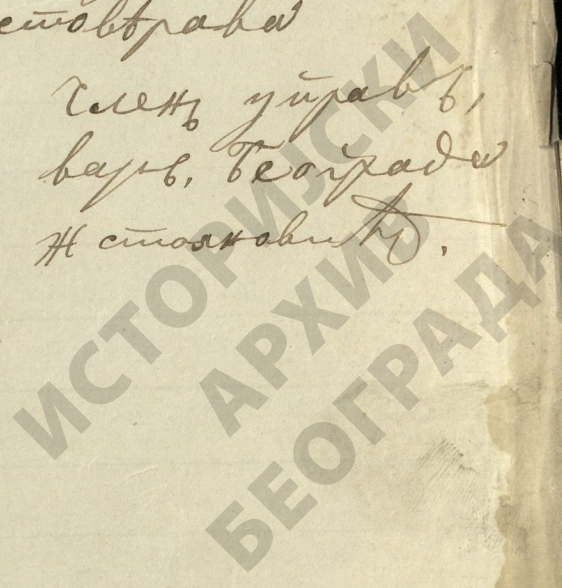 стовѣрава
Членъ управѣ,
варо. Београда
Ж стояновић.
ИСТОРИЈСКИ
АРХИВ
БЕОГРАДА